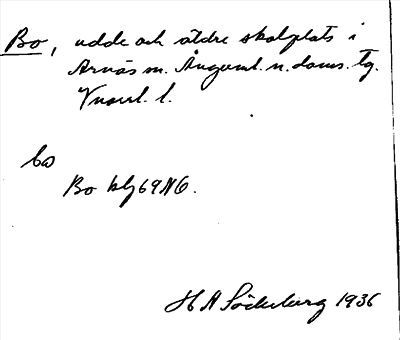 Bo, udde och äldre skolplats i
Arnäs sn. Ångerml. n. doms. tg.
Vnorrl. l.
bo
Bo blj 69 NO.
H A Söderberg 1936